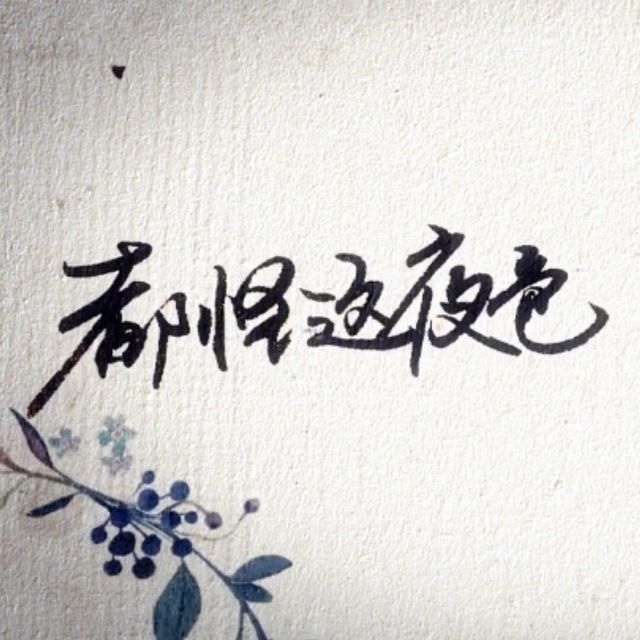 都怪这夜色